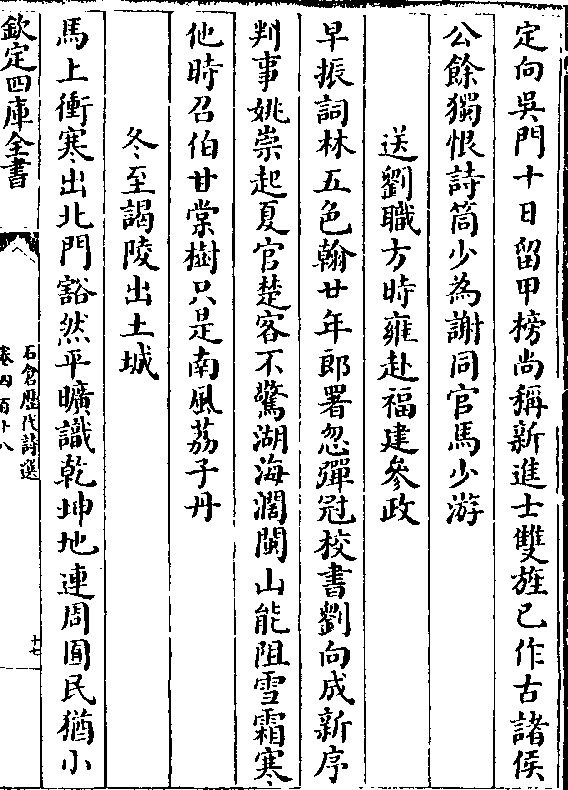 定向吳門十日留甲榜尚稱新進士雙旌已作古諸侯
公餘獨恨詩筒少為謝同官馬少游
送劉職方時雍赴福建參政
早振詞林五色翰廿年郎署忽彈冠校書劉向成新序
判事姚崇起夏官楚客不驚湖海濶閩山能阻雪霜寒
他時召伯甘棠樹只是南風荔子丹
冬至謁陵出土城
馬上衝寒出北門豁然平曠識乾坤地連周囿民猶小
欽定四庫全書
石倉歷代詩選
卷四百十八
十七